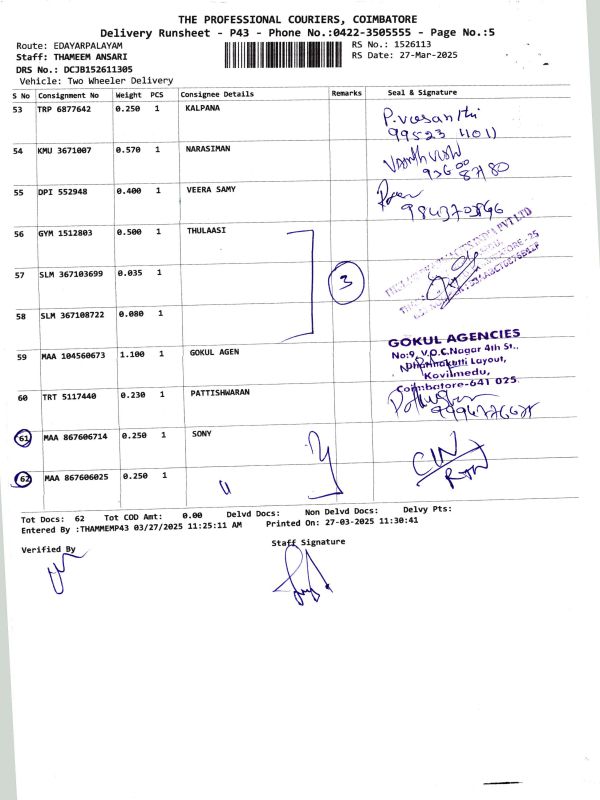 THE PROFESSIONAL COURIERS, COIMBATORE
Delivery Runsheet - P43 - Phone No.:0422-3505555 - Page No.:5
Route: EDAYARPALAYAM
RS No.: 1526113
Staff: THAMEEM ANSARI
RS Date: 27-Mar-2025
DRS No.: DCJB152611305
Vehicle: Two Wheeler Delivery
S No Consignment No Weight PCS Consignee Details Remarks Seal & Signature
53 TRP 6877642 0.250 1 KALPANA P.vasanthi
99523 11011
54 KMU 3671007 0.570 1 NARASIMAN
55 DPI 552948 0.400 1 VEERA SAMY
9843720846
56 GYM 1512803 0.500 1 THULAASI
57 SLM 367103699 0.035 1 3
58 SLM 367108722 0.080 1
59 MAA 104560673 1.100 1 GOKUL AGEN GOKUL AGENCIES
No:9, V.O.C.Nagar 4th St.,
Dharmakutti Layout,
Kovilmedu,
Coimbatore-641 025.
60 TRT 5117440 0.230 1 PATTISHWARAN
61 MAA 867606714 0.250 1 SONY
62 MAA 867606025 0.250 1 "
Tot Docs: 62 Tot COD Amt: 0.00 Delvd Docs: Non Delvd Docs: Delvy Pts:
Entered By :THAMMEMP43 03/27/2025 11:25:11 AM Printed On: 27-03-2025 11:30:41
Verified By
Staff Signature